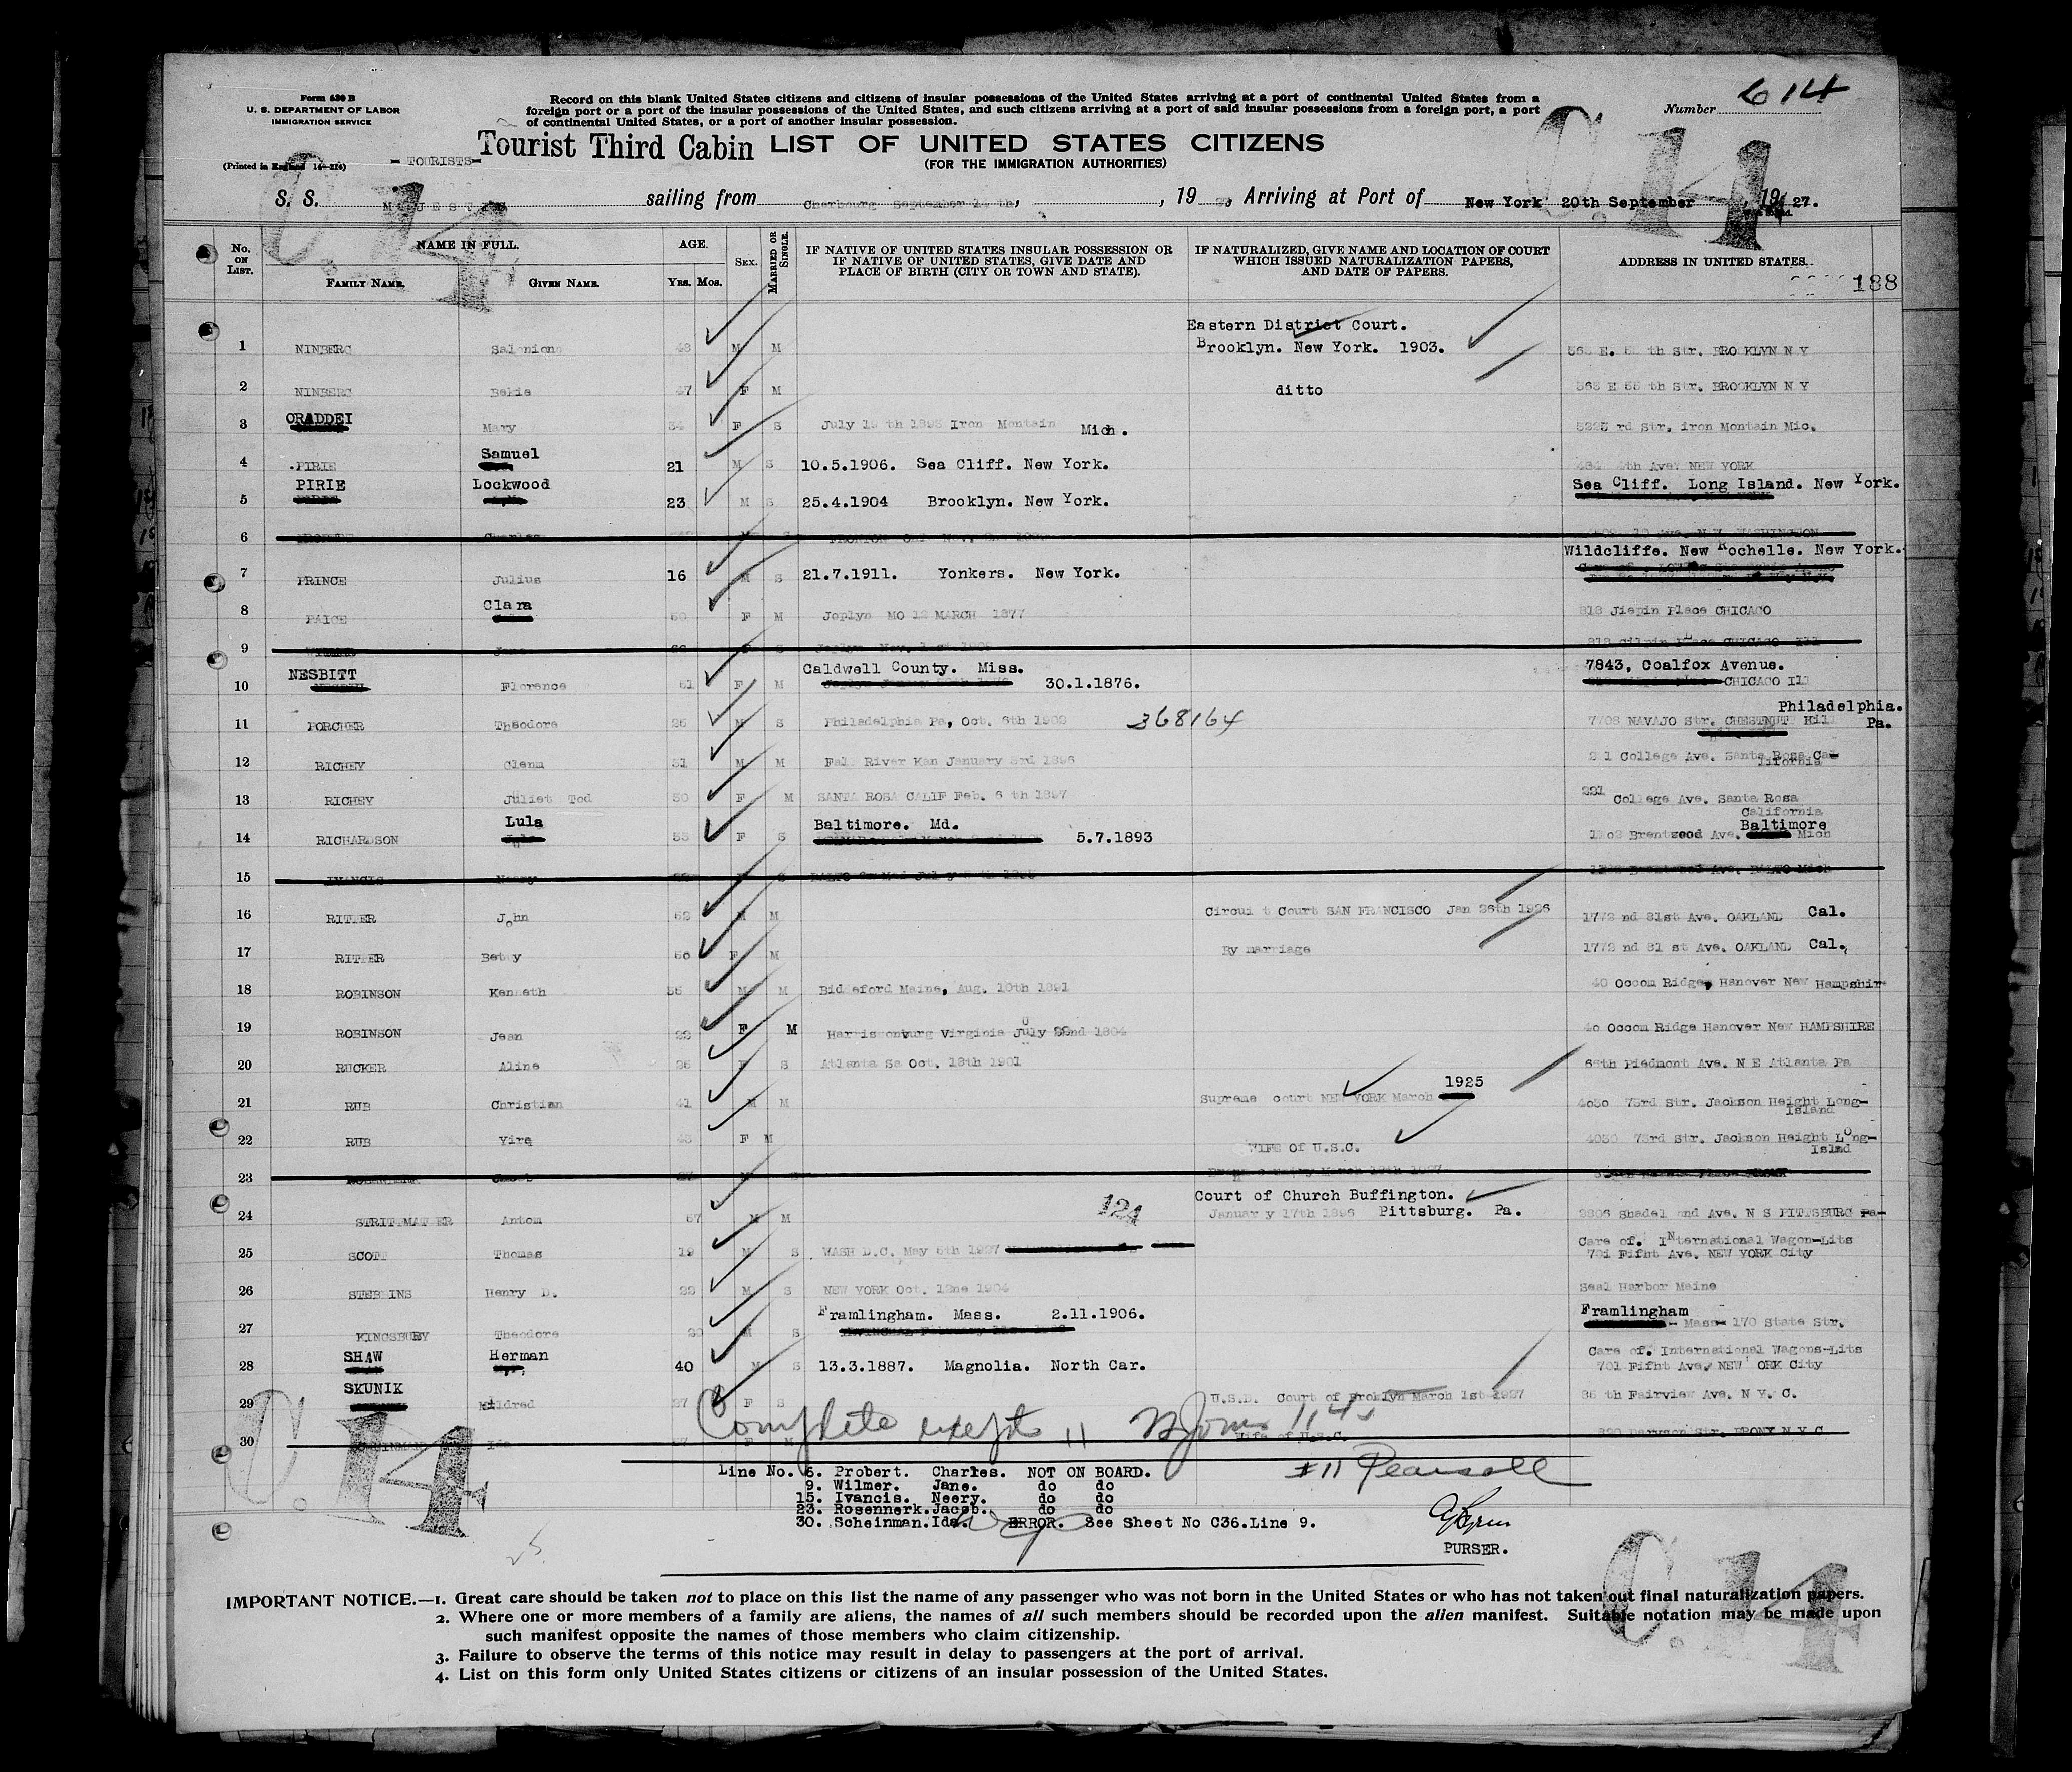 Form 630 B
U. S. DEPARTMENT OF LABOR
IMMIGRATION SERVICE
(Printed in England
Record on this blank United States citizens and citizens of insular possessions of the United States arriving at a port of continental United States from a
foreign port or a port of the insular possessions of the United States, and such citizens arriving at a port of said insular possessions from a foreign port, a port
of continental United States, or a port of another insular possession.
Number 614
- TOURISTS-
Tourist Third Cabin LIST OF UNITED STATES CITIZENS
(FOR THE IMMIGRATION AUTHORITIES)
C.14 C.14
S. S. MAJESTIC sailing from Cherbourg September th, , 19 , Arriving at Port of New York 20th September , 19 27.
No. ON LIST. NAME IN FULL. AGE. SEX. MARRIED OR SINGLE. IF NATIVE OF UNITED STATES INSULAR POSSESSION OR IF NATIVE OF UNITED STATES, GIVE DATE AND PLACE OF BIRTH (CITY OR TOWN AND STATE). IF NATURALIZED, GIVE NAME AND LOCATION OF COURT WHICH ISSUED NATURALIZATION PAPERS, AND DATE OF PAPERS. ADDRESS IN UNITED STATES.
FAMILY NAME. GIVEN NAME. Yrs. Mos.
188
Eastern District Court.
1 NINBERG M M Brooklyn. New York. 1903. E. th Str. BROOKLYN N Y
2 NINBERG 47 F M ditto 363 E 55 th Str. BROOKLYN N Y
3 ORADDEI Mary F S July th Iron Montain Mich. rd Str. iron Montain Mic.
4 PIRIE Samuel 21 M S 10.5.1906. Sea Cliff. New York. 5th Ave. NEW YORK
5 PIRIE Lockwood 23 M S 25.4.1904 Brooklyn. New York. Sea Cliff. Long Island. New York.
6 Charles
Wildcliffe. New Rochelle. New York.
7 PRINCE Julius 16 M S 21.7.1911. Yonkers. New York.
8 PAICE Clara F M Joplyn MO 12 MARCH 1877 818 Place CHICACO
9
10 NESBITT Florence 51 F M Caldwell County. Miss. 30.1.1876. 7843, Coalfox Avenue. CHICACO Ill
11 PORCHER Theodore M S Philadelphia Pa, Oct. 6th 368164 NAVAJO Str. CHESTNUT Hill Philadelphia. Pa.
12 RICHEY Glenn 31 M M Fall River Kan January 3rd 1896 College Ave. Santa Rosa California
13 RICHEY Juliet Tod 30 F M SANTA ROSA CALIF Feb. 6 th 1897 221 College Ave. Santa Rosa California
14 RICHARDSON Lula F S Baltimore. Md. 5.7.1893 Brentwood Ave. Baltimore Mich
15
16 RITTER John M M Circuit Court SAN FRANCISCO Jan 26th 1926 1772 nd 81st Ave. OAKLAND Cal.
17 RITTER Betty 50 F M By marriage 1772 nd 81 st Ave. OAKLAND Cal.
18 ROBINSON Kenneth M M Biddeford Maine, Aug. 10th 1891 40 Occom Ridge, Hanover New Hampshir
19 ROBINSON Jean F M Harrisonburg Virginia July 22nd 40 Occom Ridge Hanover New HAMPSHIRE
20 RUCKER Aline F S Atlanta Oct. 13th 1901 Piedmont Ave. N E Atlanta Pa
21 RUB Christian 41 M M Supreme court NEW YORK March 1925 4030 73rd Str. Jackson Height Long-Island
22 RUB F M WIFE of U.S.C. 4030 73rd Str. Jackson Height Long-Islnd
23
24 STRITTMATTER Anton 57 M M 124 Court of Church Buffington. January 17th 1896 Pittsburg. Pa. Ave. N S PITTSBURG Pa-
25 SCOTT Thomas 19 M S WASH D.C. May 5th 1927 Care of. International Wagon-Lits 701 Fifht Ave. NEW YORK City
26 STEBBINS Henry D. M S NEW YORK Oct. 1904 Seal Harbor Maine
27 KINGSBURY Theodore M S Framlingham. Mass. 2.11.1906. Framlingham - Mass- 170 State Str.
28 SHAW Herman 40 M S 13.3.1887. Magnolia. North Car. Care of. International Wagons-Lits 701 Fifht Ave. NEW YORK City
29 SKUNIK Mildred 27 F S U.S.D. Court of Broklyn March 1st 1927 Fairview Ave. N Y. C.
30 Wife of U.S.C.
Complete exepts 11
Line No. 6. Probert. Charles. NOT ON BOARD.
#11 Pearsall
9. Wilmer. Jane. do do
15. Ivancis. Neery. do do
23. Rosennerk. Jacob. do do
30. Scheinman. Ida. ERROR. See Sheet No C36. Line 9.
PURSER.
C.14 C.14
IMPORTANT NOTICE.—1. Great care should be taken not to place on this list the name of any passenger who was not born in the United States or who has not taken out final naturalization papers.
2. Where one or more members of a family are aliens, the names of all such members should be recorded upon the alien manifest. Suitable notation may be made upon
such manifest opposite the names of those members who claim citizenship.
3. Failure to observe the terms of this notice may result in delay to passengers at the port of arrival.
4. List on this form only United States citizens or citizens of an insular possession of the United States.